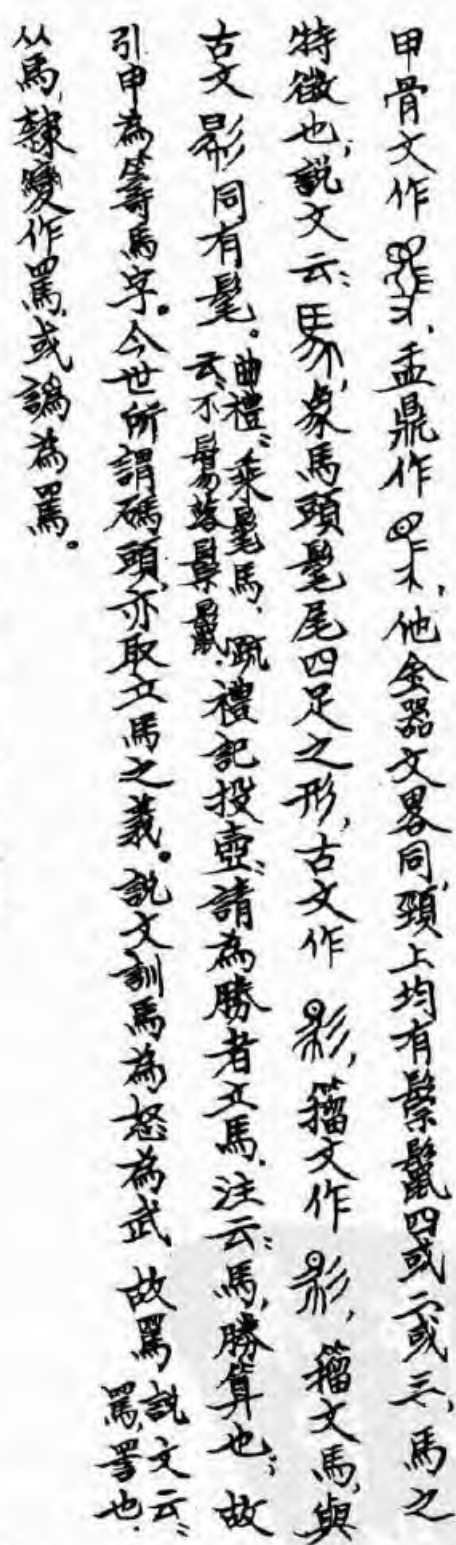 甲骨文作，盂鼎作，他金器文畧同，頸上均有鬃鬣四或二或三，馬之
特徵也，說文云：象馬頭髦尾四足之形，古文作，籀文作，籀文馬，與
古文同有髦。曲禮：乘髦馬，疏云：不鬄落鬃鬣。禮記投壺：請為勝者立馬，注云：馬，勝算也；故
引申為籌馬字。今世所謂碼頭，亦取立馬之義。說文訓馬為怒為武，故罵說文云：罵詈也，
从馬，隸變作罵，或譌為罵。